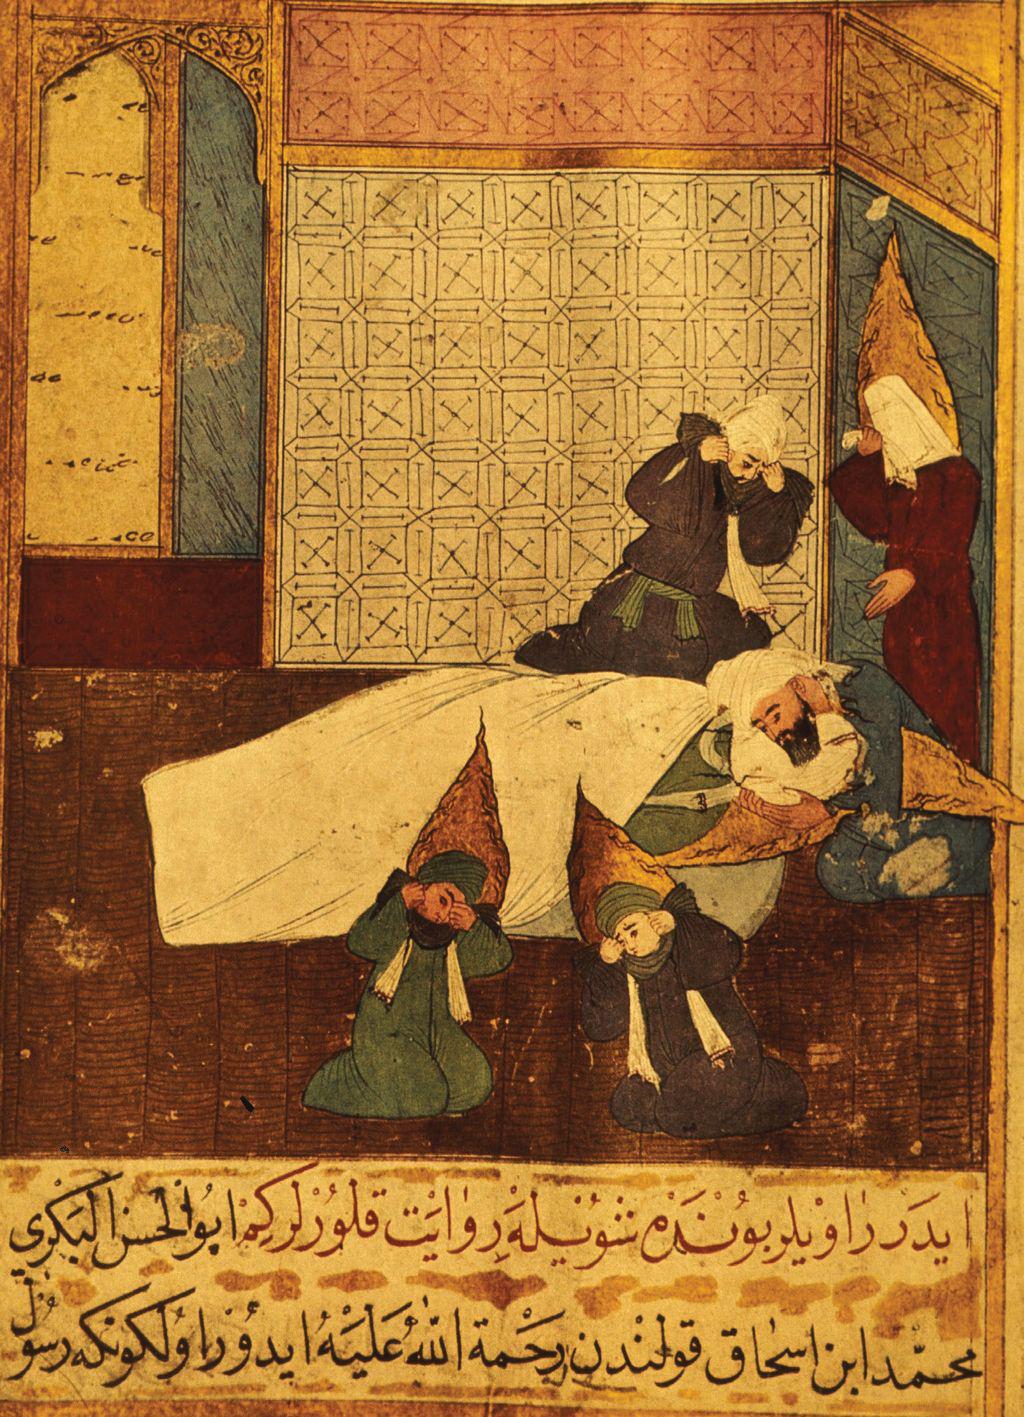 ايدَر رٰاويْلر بوُنْدَه شوُيْله رِوٰايَت قلوُرْلَر كِمْ ابوُالحسن البَكْري
محمّد ابن اسحٰاق قولندن رَحْمة اللّٰه عَليْهُ ايدوُر اوُلكونكه رسوُل